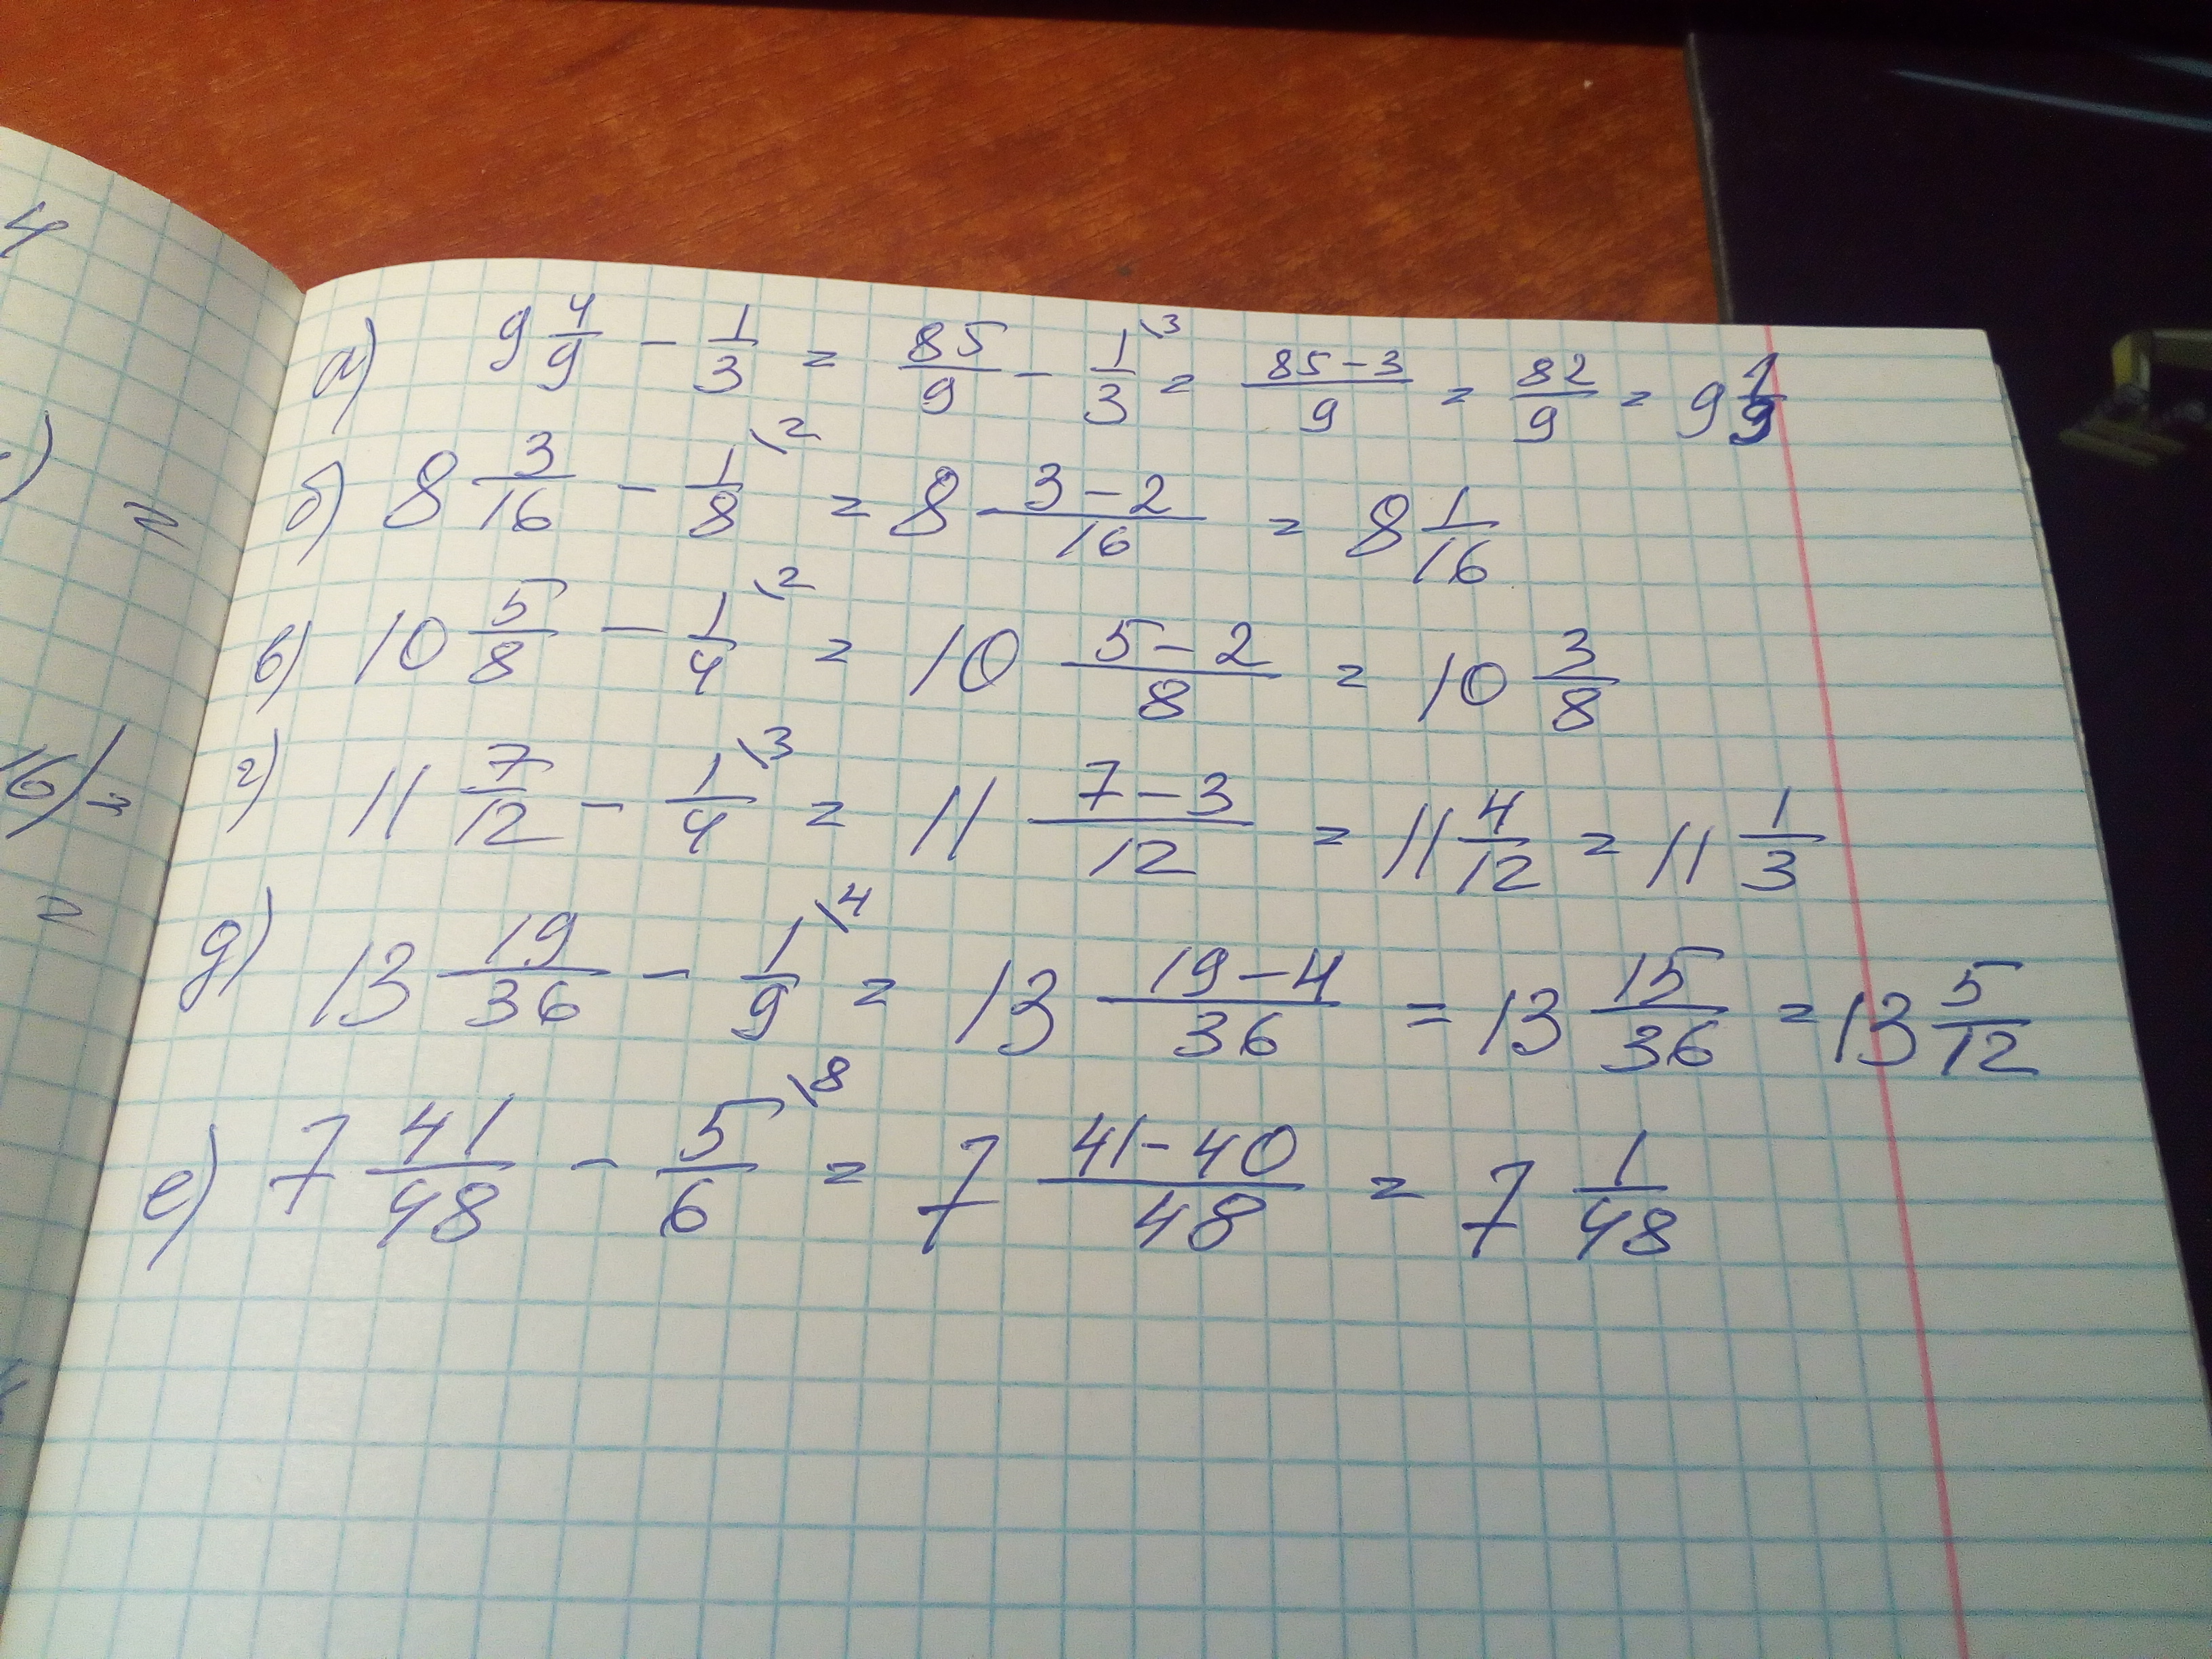 4
а) 9 4/9 - 1/3 = 85/9 - 1\3/3 = 85-3/9 = 82/9 = 9 1/9
) =
б) 8 3/16 - 1\2/8 = 8 3-2/16 = 8 1/16
в) 10 5/8 - 1\2/4 = 10 5-2/8 = 10 3/8
16) =
г) 11 7/12 - 1\3/4 = 11 7-3/12 = 11 4/12 = 11 1/3
=
д) 13 19/36 - 1\4/9 = 13 19-4/36 = 13 15/36 = 13 5/12
е) 7 41/48 - 5\8/6 = 7 41-40/48 = 7 1/48